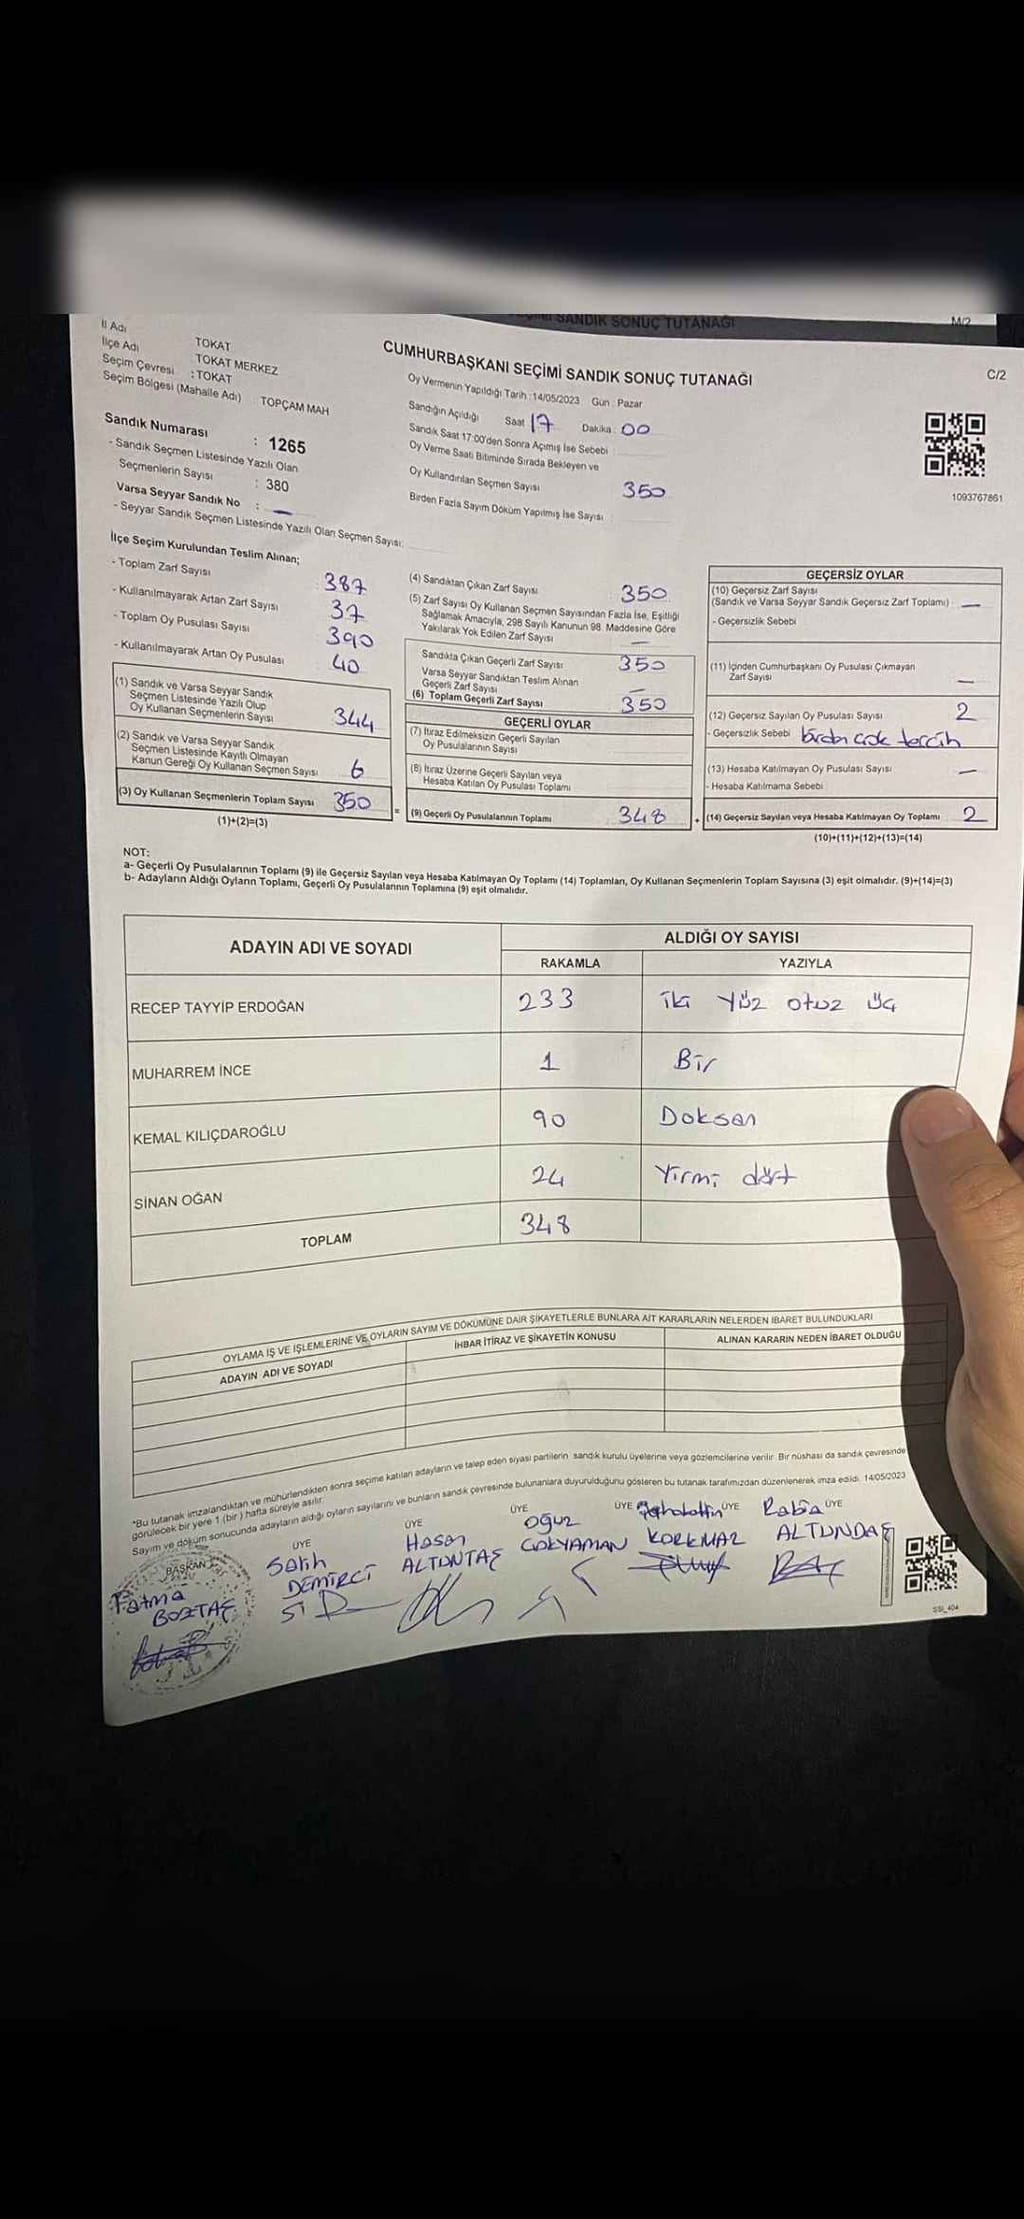 SANDIK SONUÇ TUTANAĞI
M/2
İl Adı
TOKAT
İlçe Adı
TOKAT MERKEZ
Seçim Çevresi : TOKAT
Seçim Bölgesi (Mahalle Adı) TOPÇAM MAH
Sandık Numarası : 1265
- Sandık Seçmen Listesinde Yazılı Olan
Seçmenlerin Sayısı : 380
Varsa Seyyar Sandık No : —
- Seyyar Sandık Seçmen Listesinde Yazılı Olan Seçmen Sayısı:
CUMHURBAŞKANI SEÇİMİ SANDIK SONUÇ TUTANAĞI
C/2
Oy Vermenin Yapıldığı Tarih : 14/05/2023 Gün : Pazar
Sandığın Açıldığı Saat 17 Dakika : 00
Sandık Saat 17:00'den Sonra Açımış İse Sebebi
Oy Verme Saati Bitiminde Sırada Bekleyen ve
Oy Kullandırılan Seçmen Sayısı 350
Birden Fazla Sayım Döküm Yapılmış İse Sayısı
1093767861
İlçe Seçim Kurulundan Teslim Alınan;
- Toplam Zarf Sayısı 387
- Kullanılmayarak Artan Zarf Sayısı 37
- Toplam Oy Pusulası Sayısı 390
- Kullanılmayarak Artan Oy Pusulası 40
(1) Sandık ve Varsa Seyyar Sandık
Seçmen Listesinde Yazılı Olup
Oy Kullanan Seçmenlerin Sayısı 344
(2) Sandık ve Varsa Seyyar Sandık
Seçmen Listesinde Kayıtlı Olmayan
Kanun Gereği Oy Kullanan Seçmen Sayısı 6
(3) Oy Kullanan Seçmenlerin Toplam Sayısı 350
(1)+(2)=(3)
(4) Sandıktan Çıkan Zarf Sayısı 350
(5) Zarf Sayısı Oy Kullanan Seçmen Sayısından Fazla İse, Eşitliği
Sağlamak Amacıyla, 298 Sayılı Kanunun 98. Maddesine Göre
Yakılarak Yok Edilen Zarf Sayısı —
Sandıkta Çıkan Geçerli Zarf Sayısı 350
Varsa Seyyar Sandıktan Teslim Alınan
Geçerli Zarf Sayısı —
(6) Toplam Geçerli Zarf Sayısı 350
GEÇERLİ OYLAR
(7) İtiraz Edilmeksizin Geçerli Sayılan
Oy Pusulalarının Sayısı
(8) İtiraz Üzerine Geçerli Sayılan veya
Hesaba Katılan Oy Pusulası Toplamı
= (9) Geçerli Oy Pusulalarının Toplamı 348
GEÇERSİZ OYLAR
(10) Geçersiz Zarf Sayısı
(Sandık ve Varsa Seyyar Sandık Geçersiz Zarf Toplamı) —
- Geçersizlik Sebebi
(11) İçinden Cumhurbaşkanı Oy Pusulası Çıkmayan
Zarf Sayısı —
(12) Geçersiz Sayılan Oy Pusulası Sayısı 2
- Geçersizlik Sebebi birden çok tercih
(13) Hesaba Katılmayan Oy Pusulası Sayısı —
- Hesaba Katılmama Sebebi
+ (14) Geçersiz Sayılan veya Hesaba Katılmayan Oy Toplamı 2
(10)+(11)+(12)+(13)=(14)
NOT:
a- Geçerli Oy Pusulalarının Toplamı (9) ile Geçersiz Sayılan veya Hesaba Katılmayan Oy Toplamı (14) Toplamları, Oy Kullanan Seçmenlerin Toplam Sayısına (3) eşit olmalıdır. (9)+(14)=(3)
b- Adayların Aldığı Oyların Toplamı, Geçerli Oy Pusulalarının Toplamına (9) eşit olmalıdır.
ADAYIN ADI VE SOYADI
ALDIĞI OY SAYISI
RAKAMLA YAZIYLA
RECEP TAYYİP ERDOĞAN 233 iki yüz otuz üç
MUHARREM İNCE 1 Bir
KEMAL KILIÇDAROĞLU 90 Doksan
SİNAN OĞAN 24 Yirmi dört
TOPLAM 348
OYLAMA İŞ VE İŞLEMLERİNE VE OYLARIN SAYIM VE DÖKÜMÜNE DAİR ŞİKAYETLERLE BUNLARA AİT KARARLARIN NELERDEN İBARET BULUNDUKLARI
ADAYIN ADI VE SOYADI İHBAR İTİRAZ VE ŞİKAYETİN KONUSU ALINAN KARARIN NEDEN İBARET OLDUĞU
*Bu tutanak imzalandıktan ve mühürlendikten sonra seçime katılan adayların ve talep eden siyasi partilerin sandık kurulu üyelerine veya gözlemcilerine verilir. Bir nüshası da sandık çevresinde
görülecek bir yere 1 (bir) hafta süreyle asılır.
Sayım ve döküm sonucunda adayların aldığı oyların sayılarını ve bunların sandık çevresinde bulunanlara duyurulduğunu gösteren bu tutanak tarafımızdan düzenlenerek imza edildi. 14/05/2023
BAŞKAN ÜYE ÜYE ÜYE ÜYE ÜYE ÜYE
Fatma BOZTAŞ
Salih DEMİRCİ
Hasan ALTUNTAŞ
Oğuz GÖKYAMAN
KORKMAZ
Rabia ALTUNDAĞ
SSI_404